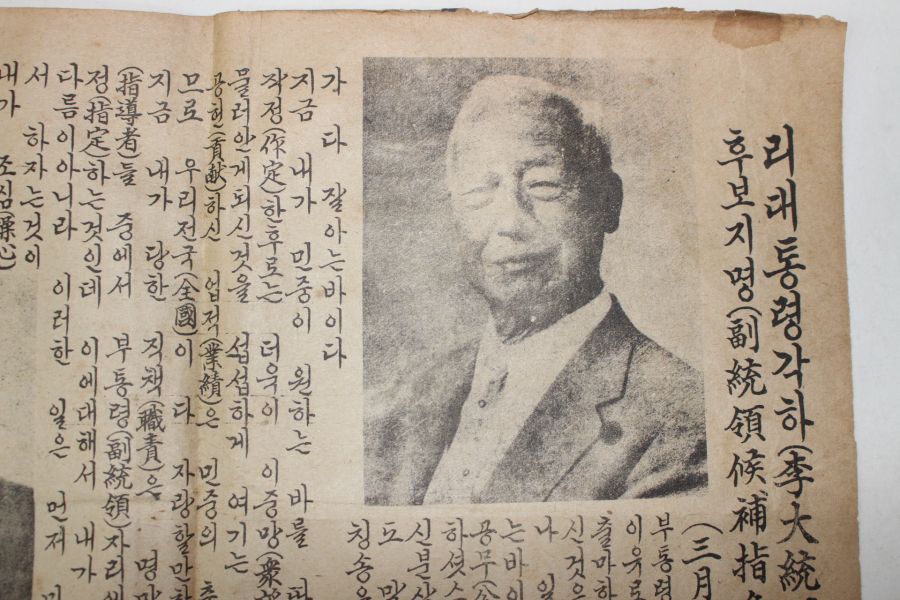 리대통령각하(李大統
후보지명(副統領候補指
(三月
부통령
이유로
출마하
신것은
나 일
는바이
공무(
하셧스
신분상
도 말
칭송
가 다 잘아는바이다
지금 내가 민중이 원하는 바를
작정(作定)한후로는 더욱이 이중망(衆
물러안게되신것을 섭섭하게 여기는
공헌(貢献)하신 업적(業績)은 민중의
므로 우리전국(全國)이 다 자랑할만한
지금 내가 당한 직책(職責)은 명망
(指導者)들 중에서 부통령(副統領)자리에
정(指定)하는것인데 이에대해서 내가
다름이아니라 이러한 일은 먼저
서 하자는것이
내가 조심(操心)